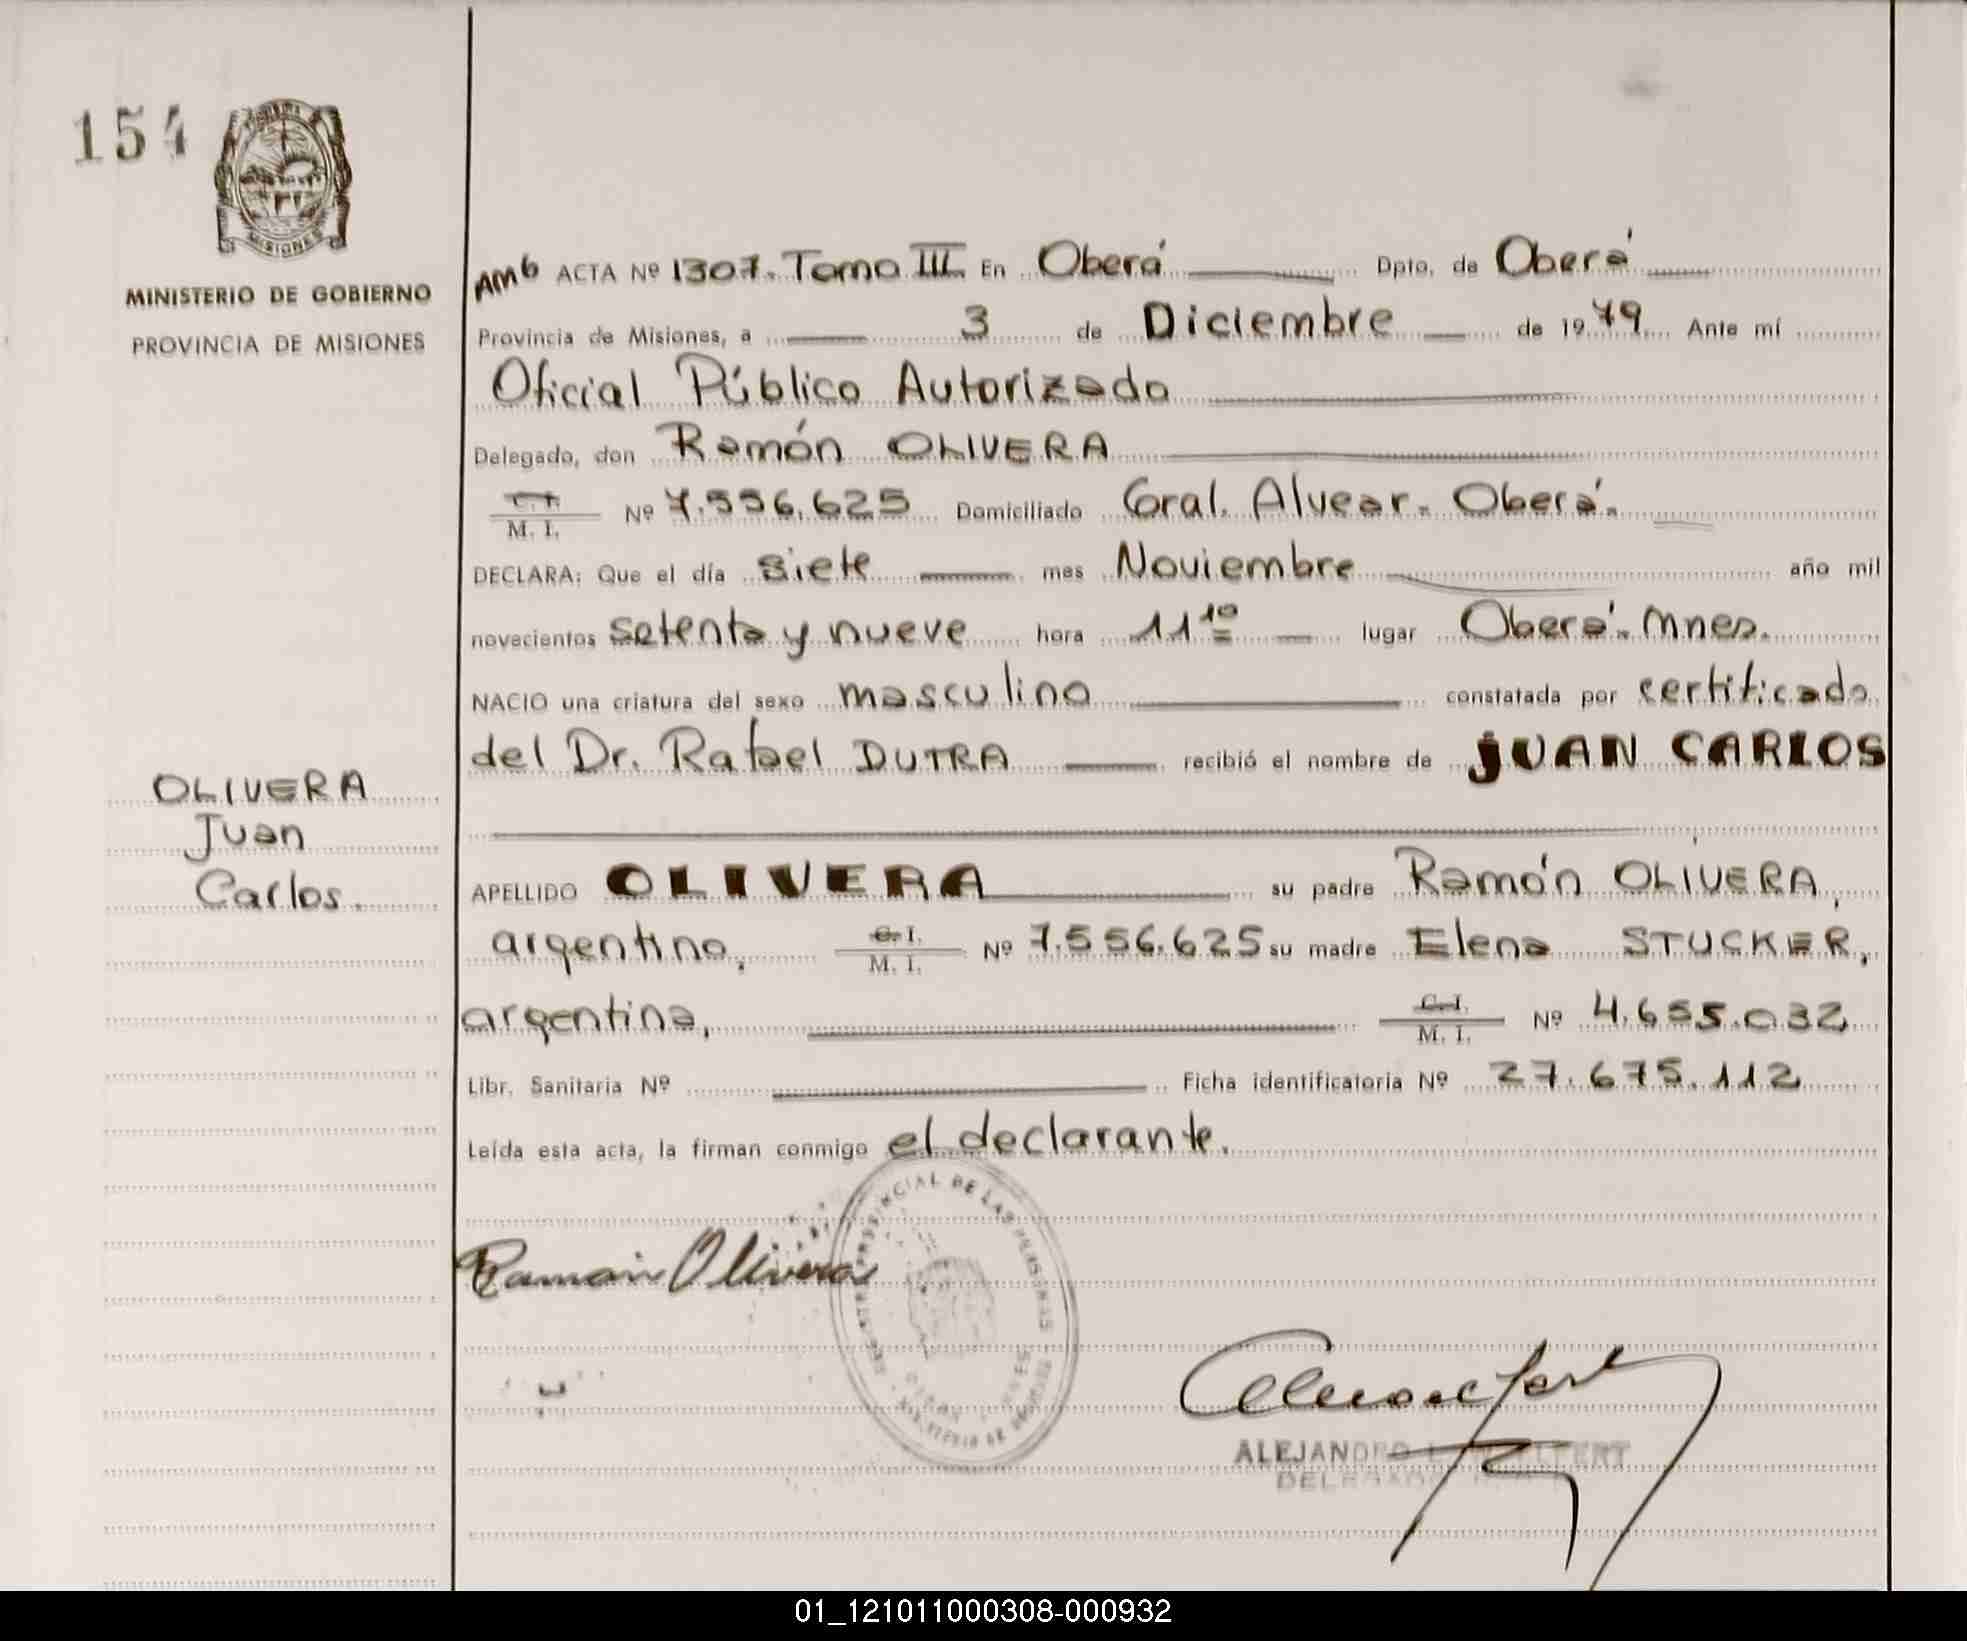 154
MISIONES
MINISTERIO DE GOBIERNO
PROVINCIA DE MISIONES
OLIVERA
Juan
Carlos.
ACTA Nº 1307. Tomo III. En Oberá Dpto. de Oberá
Provincia de Misiones, a 3 de Diciembre de 1979 Ante mí
Oficial Público Autorizado
Delegado, don Ramón OLIVERA
C. I.
M. I.
Nº 7.556.625 Domiciliado Gral. Alvear. Oberá.
DECLARA: Que el día siete mes Noviembre año mil
novecientos setenta y nueve hora 11 10 lugar Oberá. Mnes.
NACIO una criatura del sexo masculino constatada por certificado
del Dr. Rafael DUTRA recibió el nombre de JUAN CARLOS
APELLIDO OLIVERA su padre Ramón OLIVERA,
argentino, C. I. M. I. Nº 7.556.625 su madre Elena STUCKER,
argentina, C. I. M. I. Nº 4.655.032
Libr. Sanitaria Nº Ficha identificatoria Nº 27.675.112
Leída esta acta, la firman conmigo el declarante.
Ramón Olivera
PROVINCIAL DE LAS PERSONAS
ALEJANDRO
01_121011000308-000932